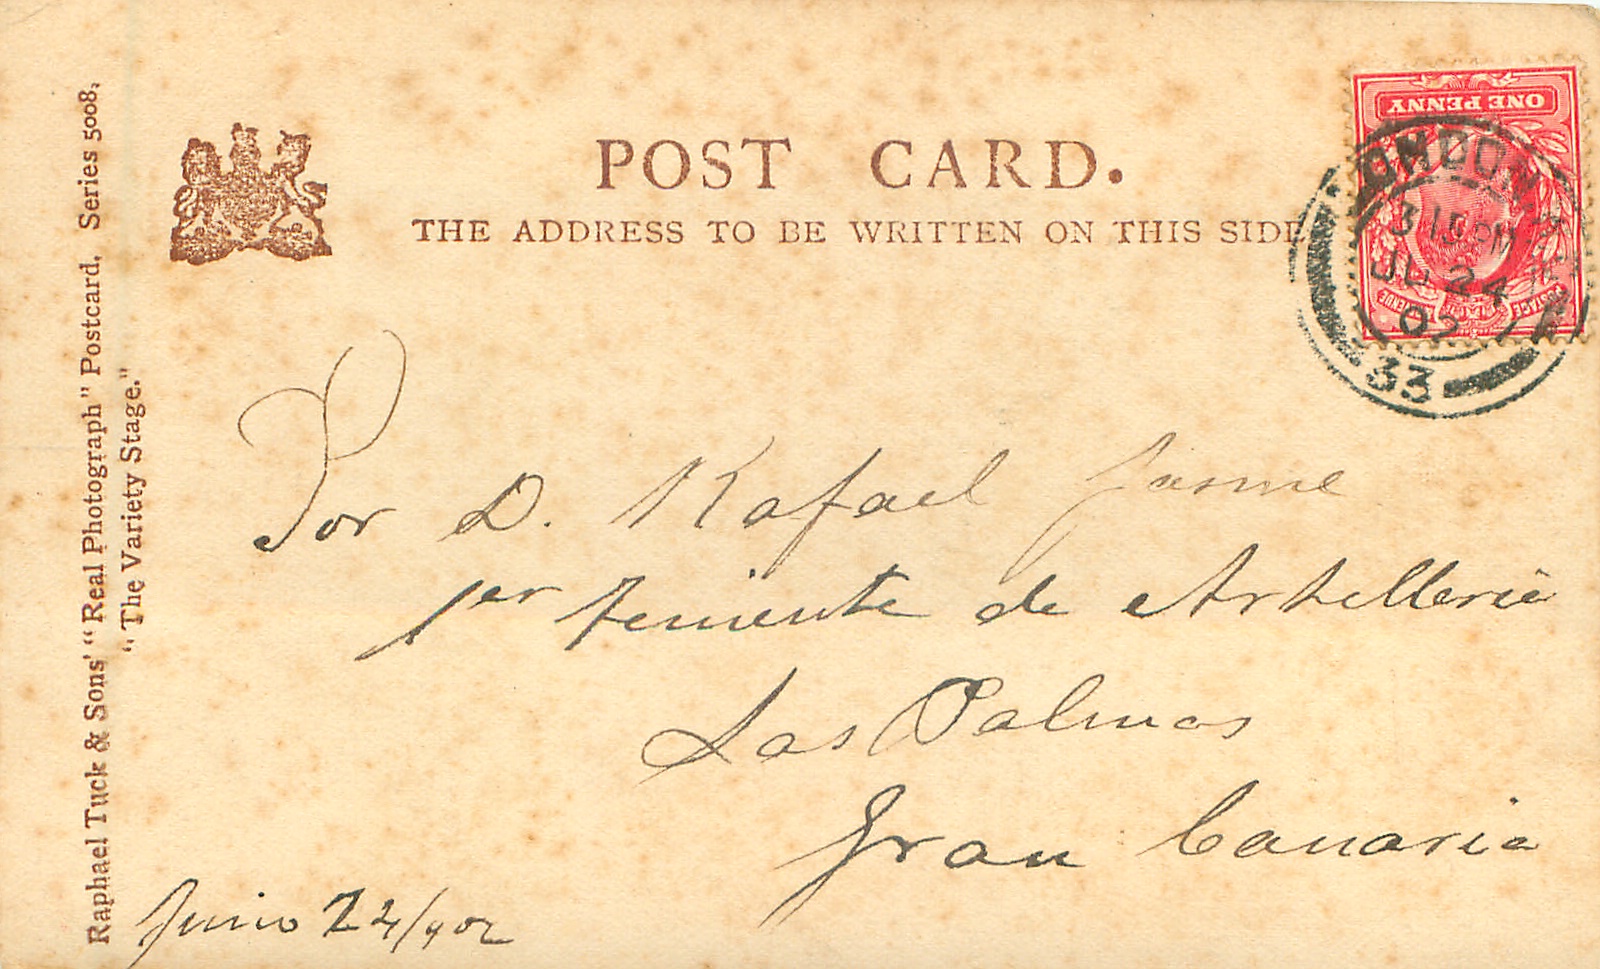 POST CARD.
THE ADDRESS TO BE WRITTEN ON THIS SIDE
Raphael Tuck & Sons' "Real Photograph" Postcard, Series 5008,
"The Variety Stage."
ONE PENNY
POSTAGE REVENUE
LONDON
3 15 PM
JL 24
02
33
Sor D. Rafael
1er teniente de Artilleria
Las Palmas
Gran Canaria
Junio 24/902